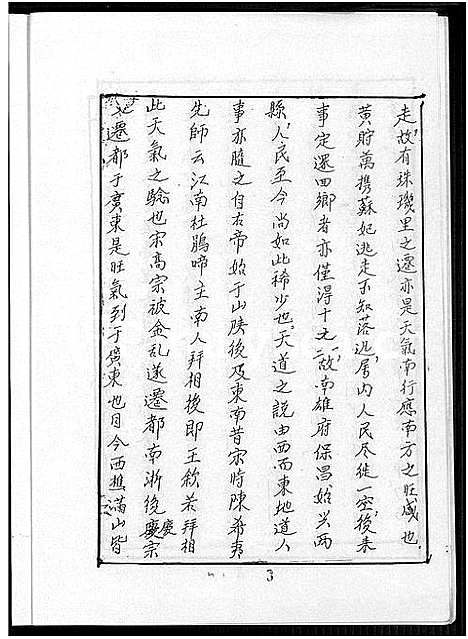 走故有珠璣里之遷亦是天氣南行應南方之旺盛也
黃貯萬携蘇妃逃走不知落迯屬內人民尽徙一空後来
事定還田鄉者亦僅得十之一二故南雄府保昌始兴两
縣人民至今尚如此稀少也天道之説由西而東地道人
事亦隨之自右帝始于山陕後及東南昔宋時陳希夷
先師云江南杜鵑啼主南人拜相後即王欽若拜相
此天氣之驗也宋高宗被金乱遂遷都南浙後慶宗
遷都于廣東是旺氣到于廣東也目今西樵滿山皆
3